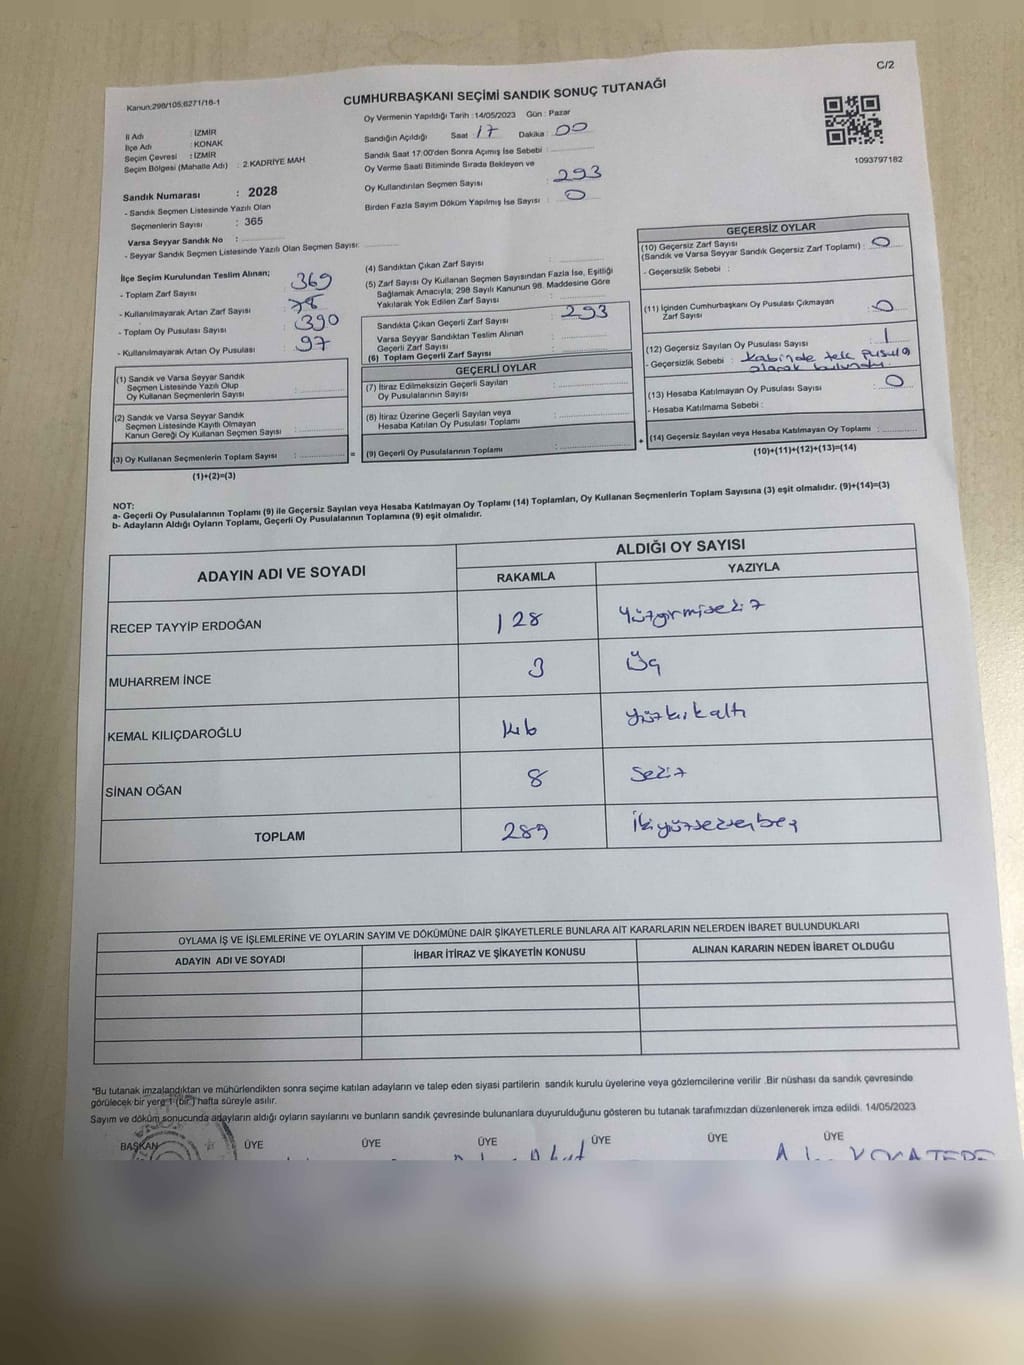 C/2
Kanun:298/105,6271/16-1
CUMHURBAŞKANI SEÇİMİ SANDIK SONUÇ TUTANAĞI
İl Adı : İZMİR
İlçe Adı : KONAK
Seçim Çevresi : İZMİR
Seçim Bölgesi (Mahalle Adı) : 2.KADRİYE MAH
Sandık Numarası : 2028
- Sandık Seçmen Listesinde Yazılı Olan
Seçmenlerin Sayısı : 365
Varsa Seyyar Sandık No :
- Seyyar Sandık Seçmen Listesinde Yazılı Olan Seçmen Sayısı:
Oy Vermenin Yapıldığı Tarih :14/05/2023 Gün : Pazar
Sandığın Açıldığı Saat 17 Dakika : 00
Sandık Saat 17:00'den Sonra Açımış İse Sebebi :
Oy Verme Saati Bitiminde Sırada Bekleyen ve
Oy Kullandırılan Seçmen Sayısı : 293
Birden Fazla Sayım Döküm Yapılmış İse Sayısı : 0
1093797182
İlçe Seçim Kurulundan Teslim Alınan;
- Toplam Zarf Sayısı : 369
- Kullanılmayarak Artan Zarf Sayısı : 76
- Toplam Oy Pusulası Sayısı : 390
- Kullanılmayarak Artan Oy Pusulası : 97
(1) Sandık ve Varsa Seyyar Sandık
Seçmen Listesinde Yazılı Olup
Oy Kullanan Seçmenlerin Sayısı :
(2) Sandık ve Varsa Seyyar Sandık
Seçmen Listesinde Kayıtlı Olmayan
Kanun Gereği Oy Kullanan Seçmen Sayısı :
(3) Oy Kullanan Seçmenlerin Toplam Sayısı :
(1)+(2)=(3)
=
(4) Sandıktan Çıkan Zarf Sayısı :
(5) Zarf Sayısı Oy Kullanan Seçmen Sayısından Fazla İse, Eşitliği
Sağlamak Amacıyla; 298 Sayılı Kanunun 98. Maddesine Göre
Yakılarak Yok Edilen Zarf Sayısı :
Sandıkta Çıkan Geçerli Zarf Sayısı : 293
Varsa Seyyar Sandıktan Teslim Alınan
Geçerli Zarf Sayısı :
(6) Toplam Geçerli Zarf Sayısı :
GEÇERLİ OYLAR
(7) İtiraz Edilmeksizin Geçerli Sayılan
Oy Pusulalarının Sayısı :
(8) İtiraz Üzerine Geçerli Sayılan veya
Hesaba Katılan Oy Pusulası Toplamı :
(9) Geçerli Oy Pusulalarının Toplamı :
+
GEÇERSİZ OYLAR
(10) Geçersiz Zarf Sayısı
(Sandık ve Varsa Seyyar Sandık Geçersiz Zarf Toplamı) : 0
- Geçersizlik Sebebi :
(11) İçinden Cumhurbaşkanı Oy Pusulası Çıkmayan
Zarf Sayısı : 0
(12) Geçersiz Sayılan Oy Pusulası Sayısı : 1
- Geçersizlik Sebebi : kabinde tek pusula
olarak bulundu.
(13) Hesaba Katılmayan Oy Pusulası Sayısı : 0
- Hesaba Katılmama Sebebi :
(14) Geçersiz Sayılan veya Hesaba Katılmayan Oy Toplamı :
(10)+(11)+(12)+(13)=(14)
NOT:
a- Geçerli Oy Pusulalarının Toplamı (9) ile Geçersiz Sayılan veya Hesaba Katılmayan Oy Toplamı (14) Toplamları, Oy Kullanan Seçmenlerin Toplam Sayısına (3) eşit olmalıdır. (9)+(14)=(3)
b- Adayların Aldığı Oyların Toplamı, Geçerli Oy Pusulalarının Toplamına (9) eşit olmalıdır.
ADAYIN ADI VE SOYADI ALDIĞI OY SAYISI
RAKAMLA YAZIYLA
RECEP TAYYİP ERDOĞAN 128 Yüzyirmisekiz
MUHARREM İNCE 3 Üç
KEMAL KILIÇDAROĞLU 146 yüzkırkaltı
SİNAN OĞAN 8 Sekiz
TOPLAM 289 İkiyüzseksenbeş
OYLAMA İŞ VE İŞLEMLERİNE VE OYLARIN SAYIM VE DÖKÜMÜNE DAİR ŞİKAYETLERLE BUNLARA AİT KARARLARIN NELERDEN İBARET BULUNDUKLARI
ADAYIN ADI VE SOYADI İHBAR İTİRAZ VE ŞİKAYETİN KONUSU ALINAN KARARIN NEDEN İBARET OLDUĞU
"Bu tutanak imzalandıktan ve mühürlendikten sonra seçime katılan adayların ve talep eden siyasi partilerin sandık kurulu üyelerine veya gözlemcilerine verilir .Bir nüshası da sandık çevresinde
görülecek bir yere 1 (bir) hafta süreyle asılır.
Sayım ve döküm sonucunda adayların aldığı oyların sayılarını ve bunların sandık çevresinde bulunanlara duyurulduğunu gösteren bu tutanak tarafımızdan düzenlenerek imza edildi. 14/05/2023
BAŞKAN ÜYE ÜYE ÜYE ÜYE ÜYE ÜYE